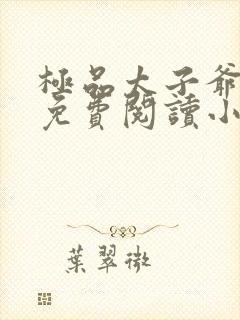 極品太子爺
免費閱讀小
葉翠微